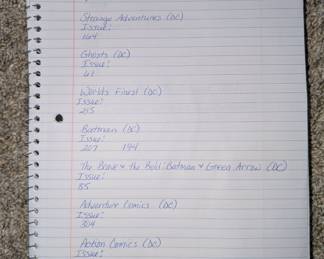 Strange Adventures (DC)
Issue:
164
Ghosts (DC)
Issue:
Worlds Finest (DC)
Issue:
Batman (DC)
Issue:
207 194
The Brave & the Bold Batman & Green Arrow (DC)
Issue:
85
Adventure Comics (DC)
Issue:
304
Action Comics (DC)
Issue: